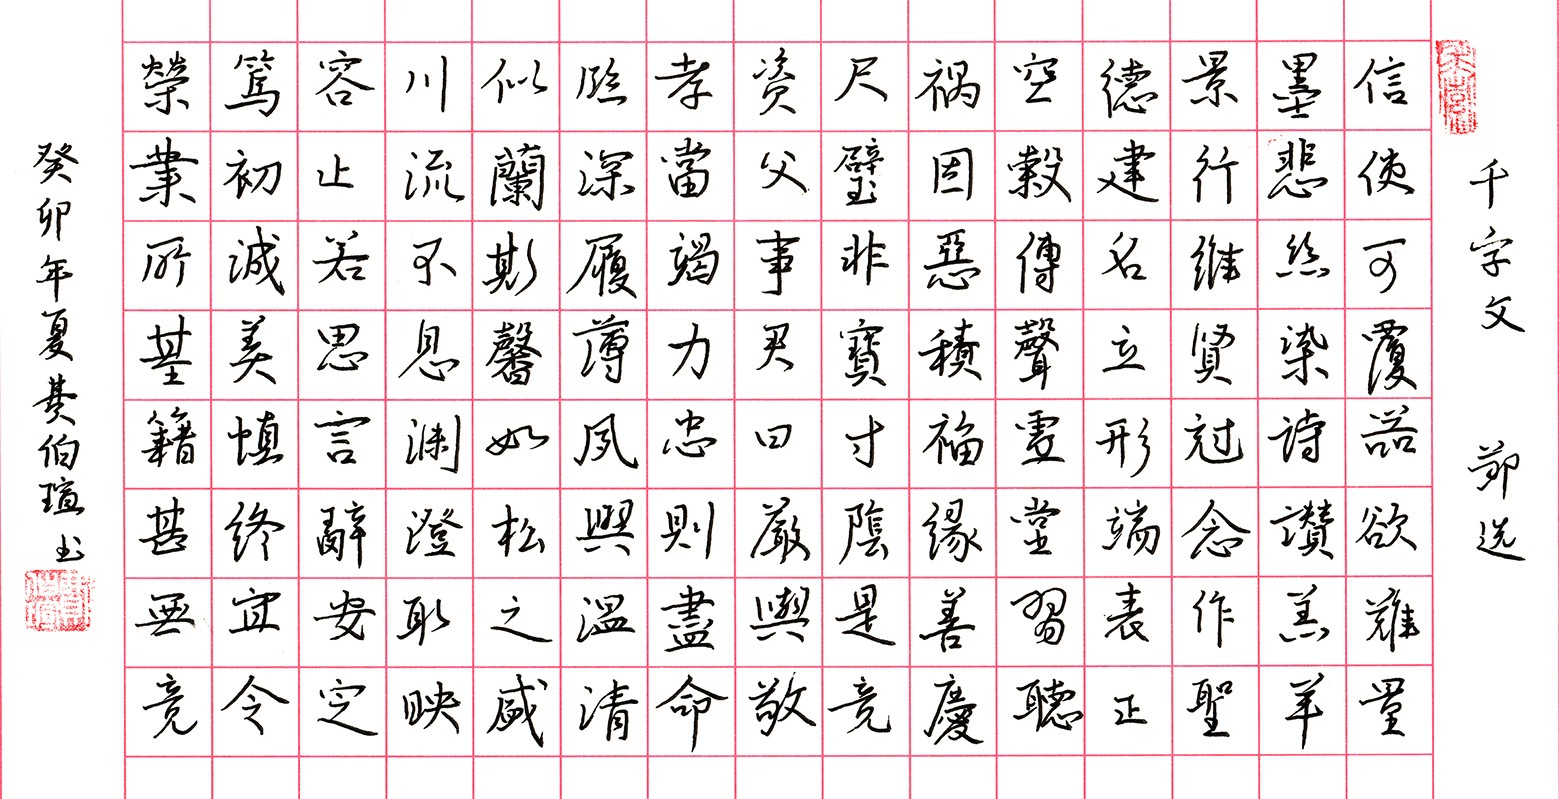 千字文 節选
信使可覆器欲難量
墨悲絲染詩讚羔羊
景行維賢尅念作聖
德建名立形端表正
空穀傳聲虛堂習聽
祸因惡積福緣善慶
尺璧非寶寸陰是竞
資父事君曰嚴與敬
孝當竭力忠則盡命
臨深履薄夙興溫清
似蘭斯馨如松之盛
川流不息淵澄取映
容止若思言辭安定
篤初誠美慎終宜令
榮業所基籍甚無竟
癸卯年夏 伯瑄书